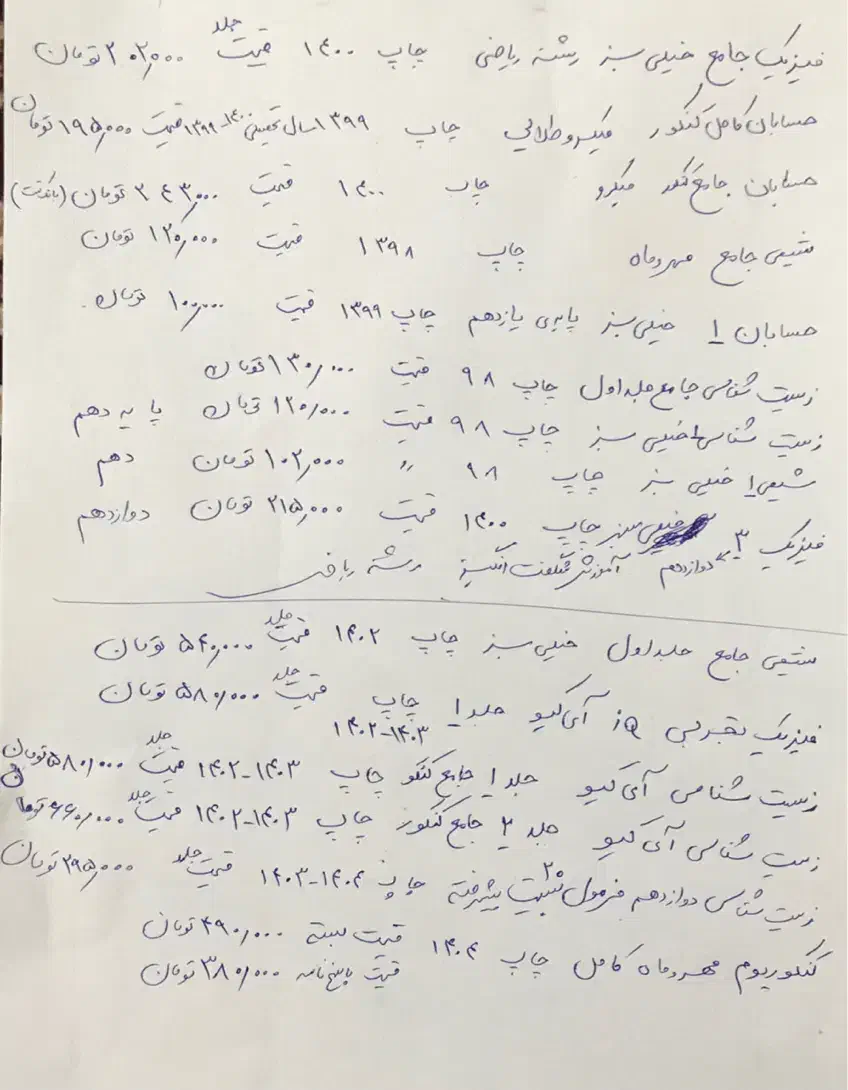 فیزیک جامع خیلی سبز رشته ریاضی چاپ ۱۴۰۰ قیمت جلد ۲۰۲/۰۰۰ تومان
حسابان کامل کنکور میکرو طلایی چاپ ۱۳۹۹ سال تحصیلی ۱۴۰۰-۱۳۹۹ قیمت ۱۹۵/۰۰۰ تومان
حسابان جامع کنکور میکرو چاپ ۱۴۰۰ قیمت ۲۴۳/۰۰۰ تومان
شیمی جامع مهروماه چاپ ۱۳۹۸ قیمت ۱۲۰/۰۰۰ تومان
حسابان ۱ خیلی سبز پایه‌ی یازدهم چاپ ۱۳۹۹ قیمت ۱۰۰/۰۰۰ تومان.
زیست شناسی جامع جلد اول چاپ ۹۸ قیمت ۱۳۰/۰۰۰ تومان
زیست شناسی ۱ خیلی سبز چاپ ۹۸ قیمت ۱۲۰/۰۰۰ تومان پایه دهم
شیمی ۱ خیلی سبز چاپ ۹۸ " ۱۰۲/۰۰۰ تومان دهم
فیزیک ۳ خیلی سبز چاپ ۱۴۰۰ قیمت ۲۱۵/۰۰۰ تومان دوازدهم
دوازدهم آموزش شگفت انگیز رشته ریاضی
شیمی جامع جلد اول خیلی سبز چاپ ۱۴۰۲ قیمت جلد ۵۴۰/۰۰۰ تومان
فیزیک تجربی iQ آی کیو جلد ۱ چاپ ۱۴۰۳-۱۴۰۲ قیمت جلد ۵۸۰/۰۰۰ تومان
زیست شناسی آی کیو جلد ۱ جامع کنکور چاپ ۱۴۰۳-۱۴۰۲ قیمت جلد ۵۸۰/۰۰۰ تومان
زیست شناسی آی کیو جلد ۲ جامع کنکور چاپ ۱۴۰۳-۱۴۰۲ قیمت جلد ۶۶۰/۰۰۰ تومان
زیست شناسی دوازدهم فرمول بیست پیشرفته چاپ ۱۴۰۴-۱۴۰۳ قیمت جلد ۳۹۵/۰۰۰ تومان
کنکوریوم مهروماه کامل چاپ ۱۴۰۴ قیمت بسته ۴۹۰/۰۰۰ تومان
قیمت پاسخ نامه ۳۸۰/۰۰۰ تومان